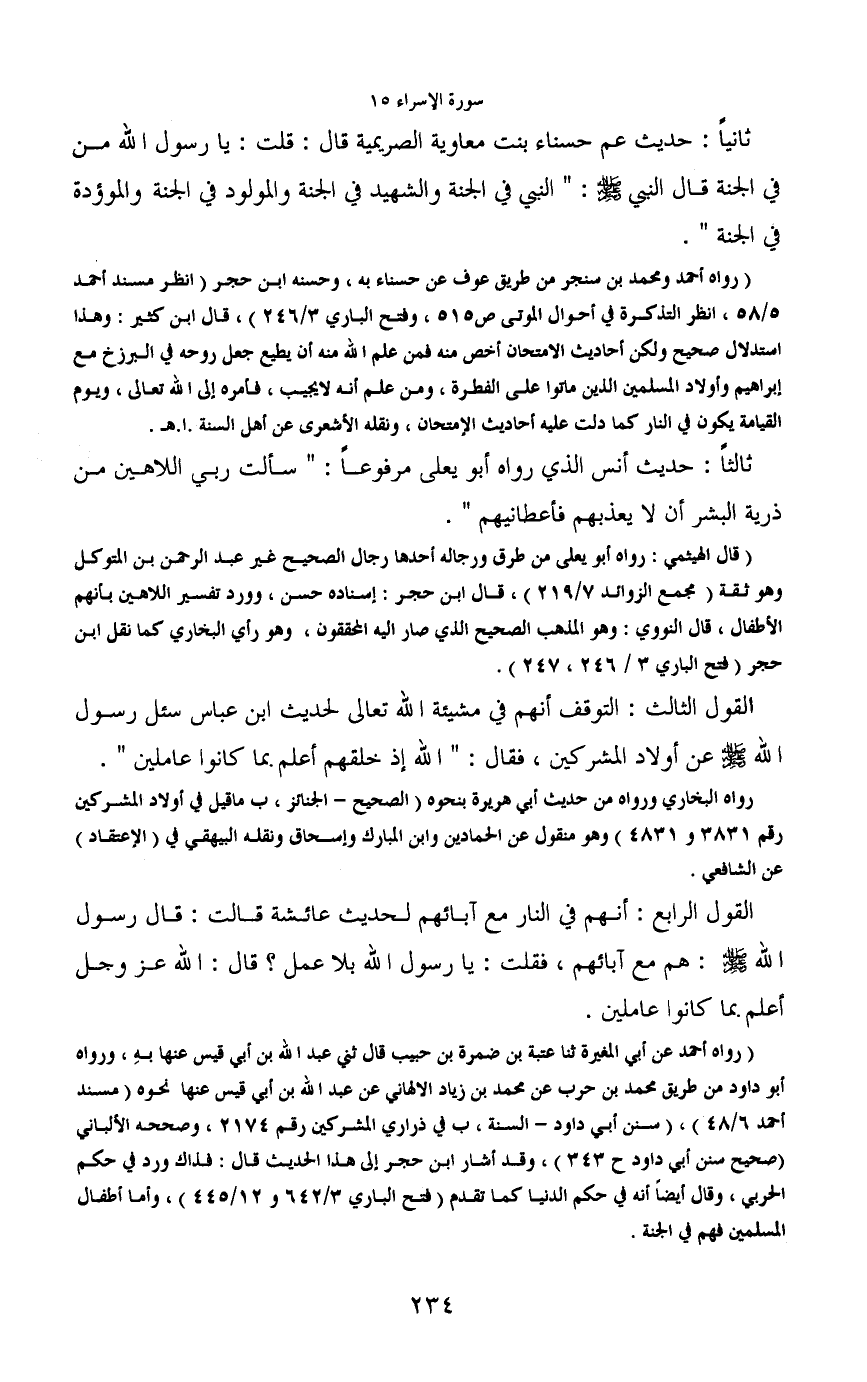 سورة الإسراء ١٥
ثانياً : حديث عم حسناء بنت معاوية الصريمية قال : قلت : يا رسول الله مـن
في الجنة قـال النبي ﷺ : " النبي في الجنة والشهيد في الجنة والمولود في الجنة والموؤدة
في الجنة " .
( رواه أحمد ومحمد بن سنجر من طريق عوف عن حسناء به ، وحسنه ابـن حجـر ( انظـر مسـند أحمـد
٥٨/٥ ، انظر التذكـرة في أحـوال الموتى ص٥١٥ ، وفتـح البـاري ٢٤٦/٣ ) ، قـال ابن كثير : وهـذا
استدلال صحيح ولكن أحاديث الامتحان أخص منه فمن علم الله منه أن يطيع جعل روحه في الـبرزخ مـع
إبراهيم وأولاد المسلمين الذين ماتوا علـى الفطـرة ، ومـن علـم أنـه لايجيـب ، فـأمره إلى الله تعـالى ، ويـوم
القيامة يكون في النار كما دلت عليه أحاديث الإمتحان ، ونقله الأشعرى عن أهل السنة .ا.هـ .
ثالثاً : حديث أنس الذي رواه أبو يعلى مرفوعـاً : " سـألت ربـي اللاهـين مـن
ذرية البشر أن لا يعذبهم فأعطانيهم " .
( قال الهيثمي : رواه أبو يعلى من طرق ورجاله أحدها رجال الصحيـح غـير عبـد الرحمـن بـن المتوكـل
وهو ثـقـة ( مجمـع الزوائـد ٢١٩/٧ ) ، قـال ابن حجـر : إسـناده حسـن ، وورد تفسـير اللاهـين بـأنهم
الأطفال ، قال النووي : وهو المذهب الصحيح الذي صار اليه المحققون ، وهو رأي البخاري كما نقل ابـن
حجر ( فتح الباري ٣ / ٢٤٦ ، ٢٤٧ ) .
القول الثالث : التوقف أنهم في مشيئة الله تعالى لحديث ابن عباس سئل رسـول
الله ﷺ عن أولاد المشركين ، فقال : " الله إذ خلقهم أعلم بما كانوا عاملين " .
رواه البخاري ورواه من حديث أبي هريرة بنحوه ( الصحيح – الجنائز ، ب ماقيل في أولاد المشـركين
رقم ٣٨٣١ و ٤٨٣١ ) وهو منقول عن الحمادين وابن المبارك وإسـحاق ونقلـه البيهقـي في ( الإعتقـاد )
عن الشافعي .
القول الرابع : أنـهم في النار مع آبـائهم لـحديث عائـشة قـالت : قـال رسـول
الله ﷺ : هم مع آبائهم ، فقلت : يا رسول الله بلا عمل ؟ قال : الله عـز وجـل
أعلم بما كانوا عاملين .
( رواه أحمد عن أبي المغيرة ثنا عتبة بن ضمرة بن حبيب قال ثني عبد الله بن أبي قيس عنها بـه ، ورواه
أبو داود من طريق محمد بن حرب عن محمد بن زياد الالهاني عن عبد الله بن أبي قيس عنها نحـوه ( مسـند
أحمد ٤٨/٦ ) ، ( سـنن أبـي داود – السنة ، ب في ذراري المشـركين رقـم ٢١٧٤ ، وصححـه الألبـاني
(صحيح سنن أبي داود ح ٣٤٣ ) ، وقـد أشـار ابن حجـر إلى هـذا الحديـث قـال : فـذاك ورد في حكـم
الحربي ، وقال أيضـاً أنه في حكم الدنيـا كمـا تقدم ( فتح البـاري ٦٤٢/٣ و ٤٤٥/١٢ ) ، وأمـا أطفـال
المسلمين فهم في الجنة .
٢٣٤